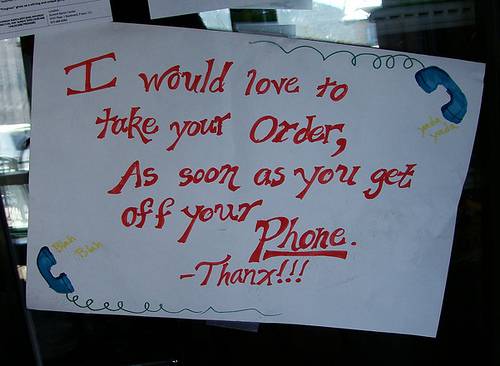 I would love to
take your Order,
As soon as you get
off your Phone.
-Thanx!!!
yada
yada
Blah
Blah